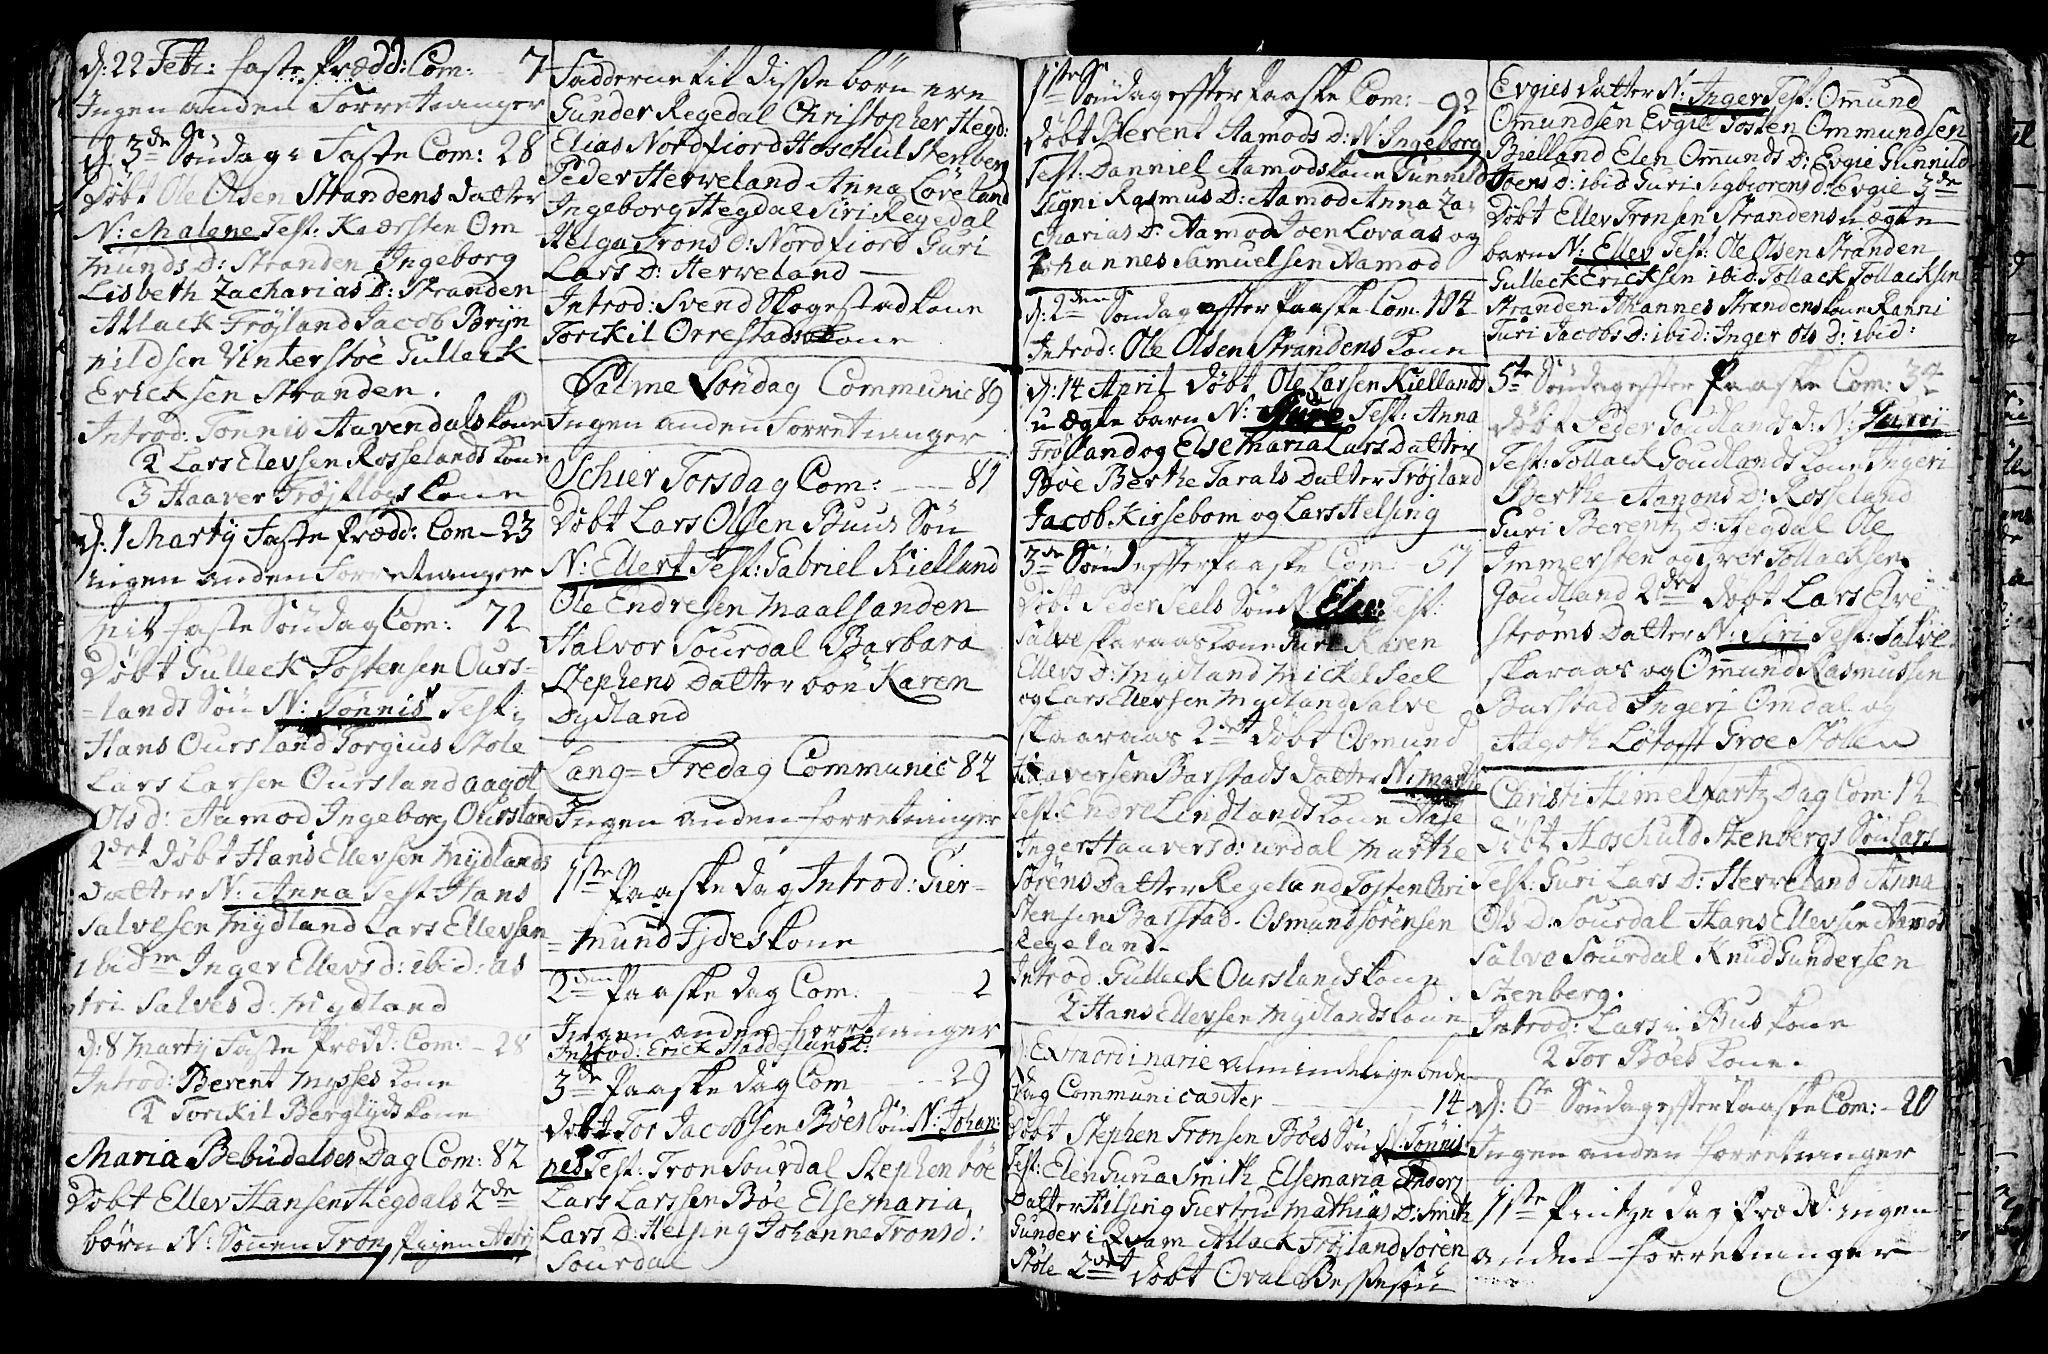 d: 22 Febr: faste Prædd: Com: 7
Ingen anden Forretninger
d: 3de Søndag i Faste Com: 28
Døbt Ole Olsen Strandens datter
N: Malene Test: Kaarsten Om
munds D: Stranden Ingeborg
Lisbeth Zacharias D: Stranden
Atlack Frøjland Jacob Brÿn
nildsen Vinterstøe Gulleck
Ericksen Stranden.
Introd: Tønnis Aavendals kone
2 Lars Elevsen Rosselands kone
3 Haaver Frøjflogs kone
d: 1 Martÿ Faste Prædd: Com 23
ingen anden Forretninger
Mit faste Søndag Com: 72
Døbt Gulleck Tostensen Ours=
=lands Søn N: Tønnis Test:
Hans Oursland Torgius Støle
Lars Larsen Oursland Aagot
Ols d: Aamod Ingeborg Oursland
2det Døbt Hans Ellevsen Mydlands
datter N: Anna Test Hans
Salvesen Mydland Lars Ellevsen
ibidm Inger Ellevs d: ibid: As
tri Salves d: Mydland
d: 8 Martÿ Faste Prædd: Com: 28
Introd: Berent Mysses kone
2 Torkil Berglyds kone
Maria Bebudelses Dag Com: 82
Døbt Ellev Hansen Hegdals 2de
børn N: Sønen Tron, Pigen Astri
Fadderne til disse børn ere
Gunder Regedal Christopher Hegd:
Elias Nordfiord Hoschul Stenberg
Peder Herreland Anna Løveland
Ingeborg Hegdal Siri Regedal
Helga Trons D: Nordfiord Guri
Lars D: Herreland
Introd: Svend Skogestad kone
Torkil Orrestads kone
Palme Søndag Communic 89
Ingen anden Forretninger
Schier Torsdag Com: 81
Døbt Lars Olsen Buus Søn
N: Ellert Test: Gabriel Kielland
Ole Endresen Maalsanden
Halvor Sourdal Barbara
Stephens Datter böe Karen
Dydland
Lang= Fredag Communic 82
Ingen anden forretninger
1ste Paaske dag Introd: Gier=
=mund Fjdes kone
2den Paaske dag Com. 2
Ingen anden forretninger
Introd: Erick Haddelands k:
3de Paaske dag Com 29
Døbt Tor Jacobsen Bøes Søn N: Johan:
nes Test: Tron Sourdal Stephen böe
Lars Larssen Bøe Elsemaria
Lars D: Helsing Johanne Trons d:
Sourdal
1ste Søndag effter Paaske Com: 92
Døbt Berent Aamods D: N: Ingeborg
Test: Danniel Aamods kone Gunnild
Signi Rasmus D: Aamod Anna Za=
charias D: Aamod Joen Lovaas og
Johannes Samuelsen Aamod
d: 2den Søndag effter Paaske Com. 104
Introd: Ole Olsen Strandens kone
d: 14 April Døbt Ole Larsen Kiellands
uægte barn N: Test: Anna
Frøjland og Else Maria Lars Datter
Bøe Berthe Tarals Datter Frøjland
Jacob Kirsebom og Lars Helsing
3de Sønd effter Paaske Com 51
Døbt Peder Seels Søn N Test:
Salve Skaraas kone Siri Karen
Ellevs D: Mydland Mickel Seel
og Lars Ellevsen Mydland Salve
Skaaraas 2det Døbt Osmund
Haaversen Barstads datter N: Marthe
Test: Endre Lindlands kone Aase
Inger Haavers d: Urdal Marthe
Sørens Datter Regeland Tosten Chri
stensen Barstad. Osmund Sørensen
Regeland.
Introd. Gulleck Ourslands kone
2 Hans Ellevsen Mydlands kone
Extraordinarie almindelige bede
dag Communicanter 14
Døbt Stephen Tronsen Bøes Søn N. Tønnis
Test: Elen Guria Smith Elsemaria
Datter Hilsing Giertru Mathias D: Smith
Gunder i Qvam Atlack Frøjland Søren
Støle 2det Døbt Oval Besses søn
Evgies datter N: Inger Test: Ommund
Ommundsen Evgie Tosten Ommundsen
Bielland Elen Ommunds D: Evgie Gunnild
Joens D: ibid Guri Sigbiorens D: Evgie 3de
Døbt Ellev Tronsen Strandens uægte
barn N: Ellev Test: Ole Olsen Stranden
Gulleck Ericksen ibid: Tollack Tollacksen
Stranden Johannes Strandens kone Ranni
Turi Jacobs D: ibid: Inger Ols D: ibid:
5te Søndag effter Paaske Com: 34
Døbt Peder Goudlands d: N:
Test: Tollack Goudlands kone Ingeri
Berthe Aanons D: Rosseland
Guri Berentz D: Hegdal Ole
Immersten og Iver Tollacksen
Goudland 2det Døbt Lars Elve
strøms Datter N: Siri Test: Salve
Skaraas og Ommund Rasmussen
Barstad Ingeri Omdal og
Aagoth Løtofft Groe Stølen
Christi Himelfartz Dag Com: 12
Døbt Hoschuld Stenbergs Søn Lars
Test: Guri Lars D: Herreland Anna
Ols D: Sourdal Hans Ellevsen Aamod
Salve Sourdal Knud Gundersen
Stenberg.
Introd: Lars i Bus kone
2 Tor Bøes kone.
d: 6te Søndag effter Paaske Com: 20
Ingen anden forretninger
1ste Pintze dag Prædd: ingen
anden forretninger